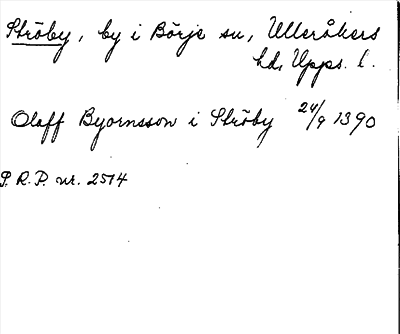 Ströby, by i Börje sn, Ulleråkers
hd, Upps. l.
Oloff Byornsson i Ströby 24/9 1390
S. R. P. nr. 2514